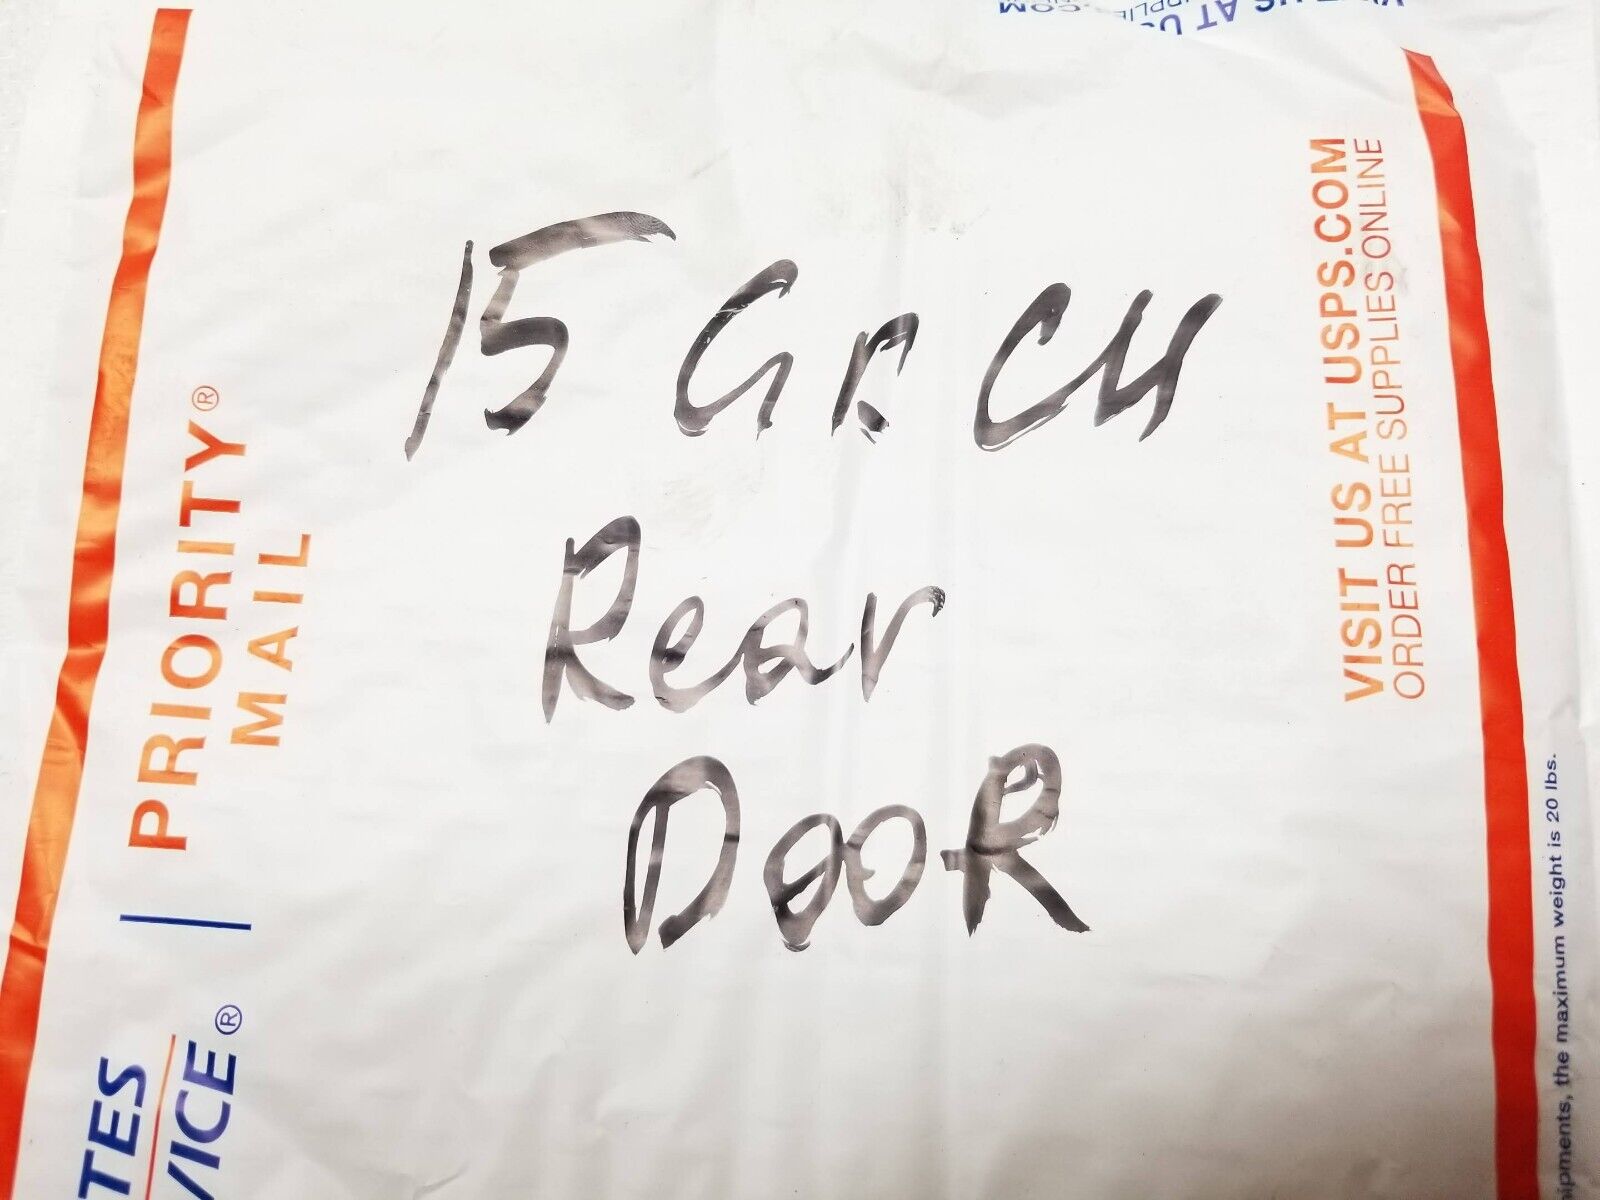 15 GR CH
Rear
DooR
PRIORITY®
MAIL
TES
VICE®
VISIT US AT USPS.COM
ORDER FREE SUPPLIES ONLINE
ipments, the maximum weight is 20 lbs.